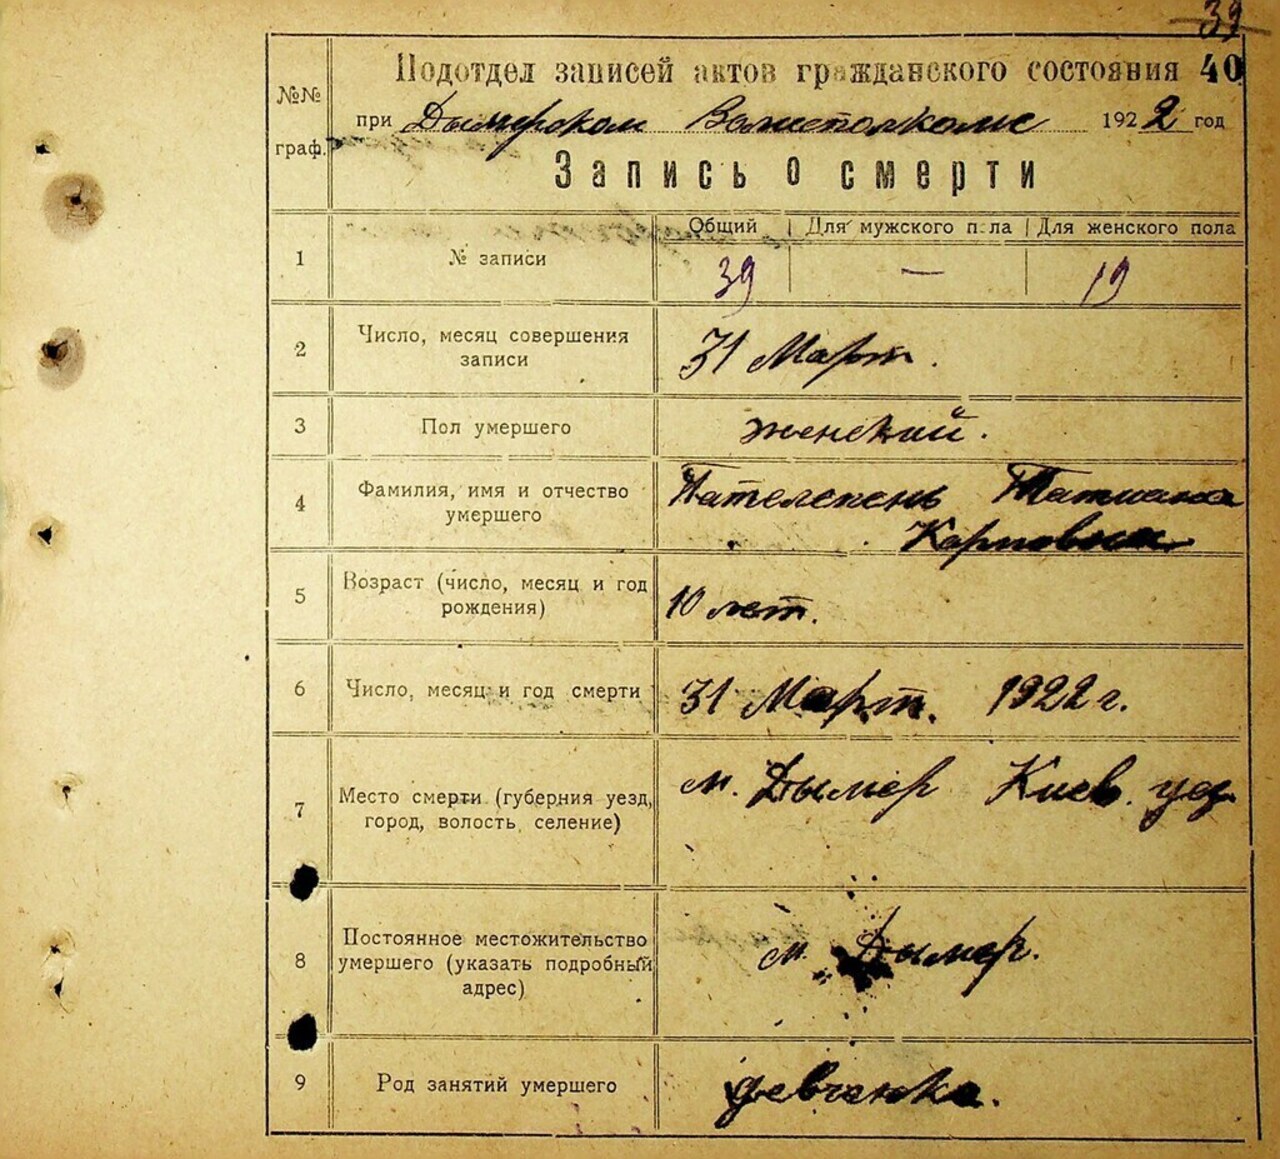 39
Подотдел записей актов гражданского состояния 40
№№ граф.
при Дымерском Волисполкоме 1922 год
Запись о смерти
Общий Для мужского пола Для женского пола
1 № записи 39 — 19
2 Число, месяц совершения записи 31 Март.
3 Пол умершего женский.
4 Фамилия, имя и отчество умершего Пателепень Татиана
Карповна
5 Возраст (число, месяц и год рождения) 10 лет.
6 Число, месяц и год смерти 31 Март. 1922 г.
7 Место смерти (губерния уезд, город, волость, селение) м. Дымер Киев. уез
8 Постоянное местожительство умершего (указать подробный адрес) м. Дымер.
9 Род занятий умершего девчонка.